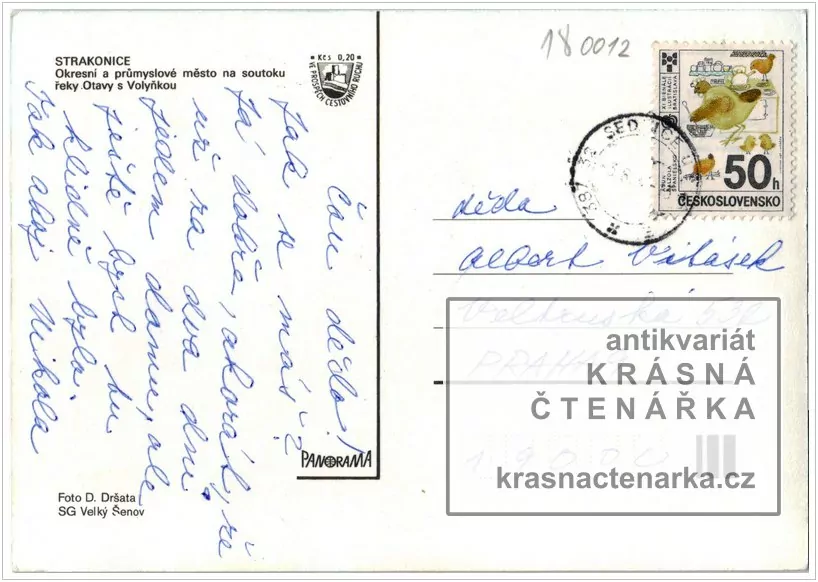 STRAKONICE
Okresní a průmyslové město na soutoku
řeky Otavy s Volyňkou
Kčs 0,20
VE PROSPĚCH CESTOVNÍHO RUCHU
Čau dědo!
Jak se máš?
Já dobře, akorát, že
už za dva dni
jedem domu, ale
ještě bych tu
klidně byla.
Tak ahoj Nikola
PANORAMA
Foto D. Dršata
SG Velký Šenov
180012
XI BIENÁLE
ILUSTRÁCIÍ
BRATISLAVA
50h
ČESKOSLOVENSKO
387 32 SED
děda
Albert Vitásek
Veltruská 53
PRAHA 9
19000
antikvariát
KRÁSNÁ
ČTENÁŘKA
krasnactenarka.cz